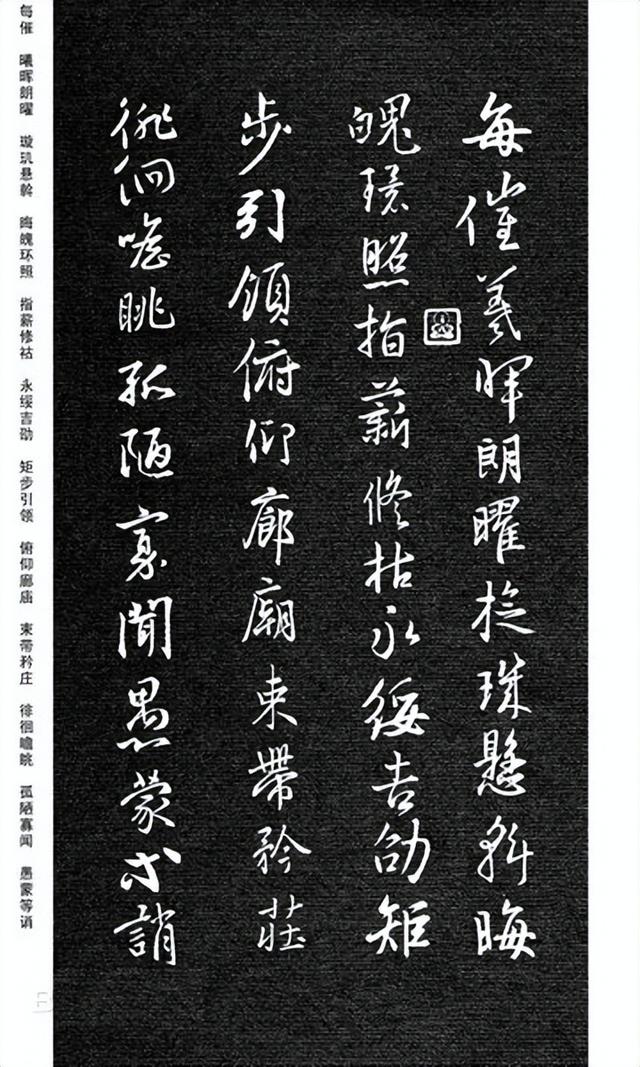 每催羲暉朗曜琁珠懸斡晦
魄環照指薪修祜永綏吉劭矩
步引領俯仰廊廟束帶矜莊
徘徊瞻眺孤陋寡聞愚蒙等誚
每催 曦晖朗曜 璇玑悬斡 晦魄环照 指薪修祜 永绥吉劭 矩步引领 俯仰廊庙 束带矜庄 徘徊瞻眺 孤陋寡闻 愚蒙等诮